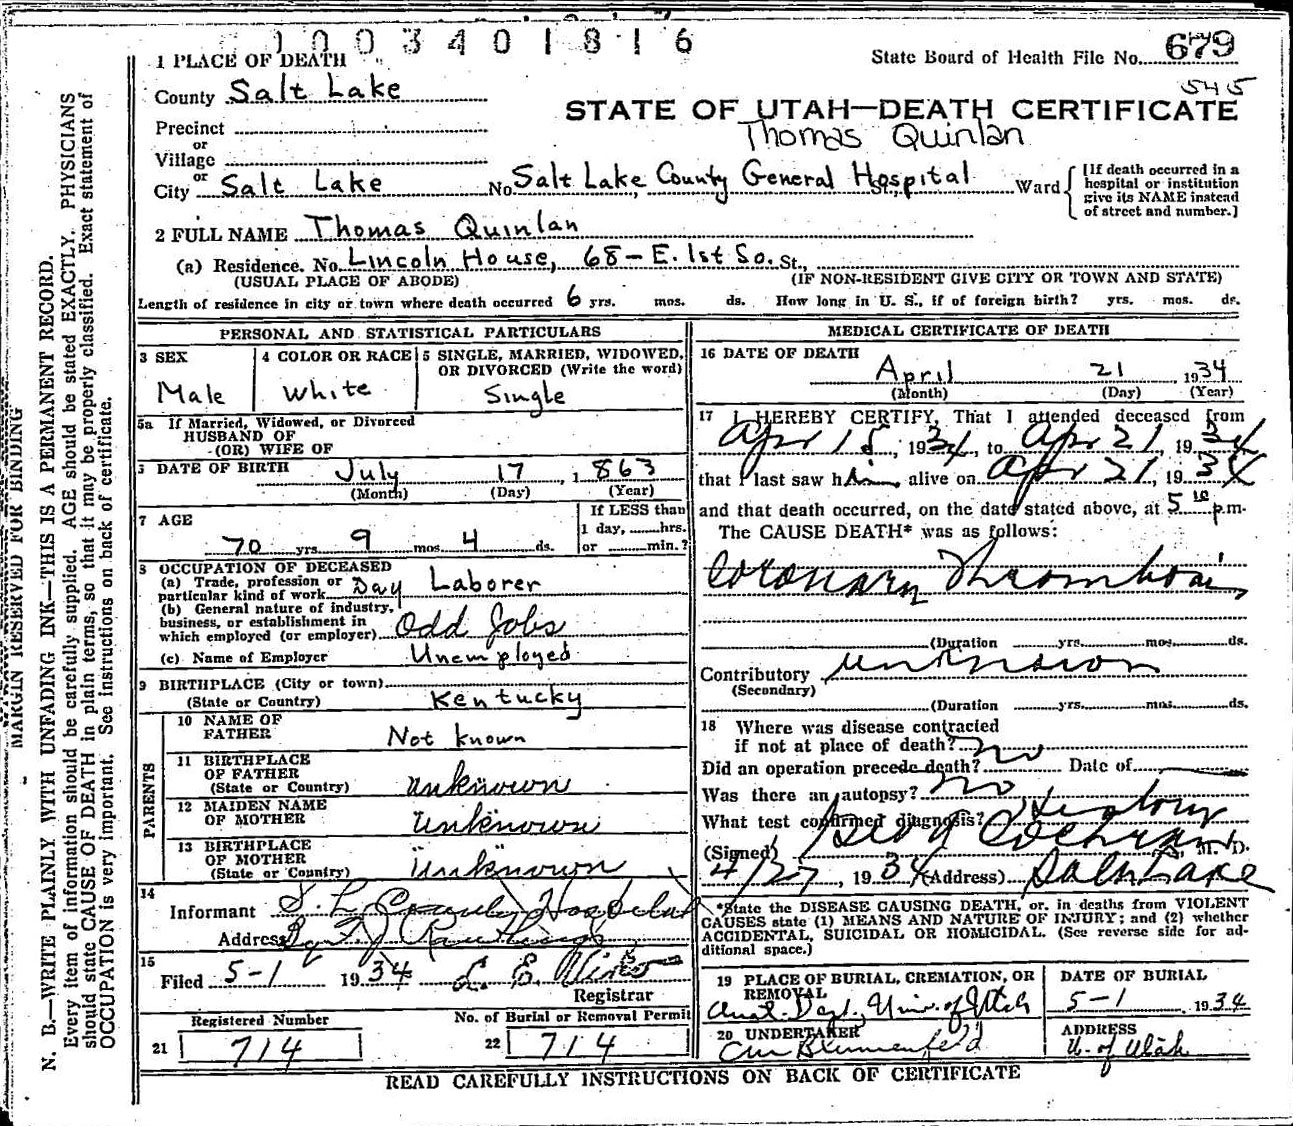 1003401816
1 PLACE OF DEATH
State Board of Health File No. 679
County Salt Lake
545
STATE OF UTAH—DEATH CERTIFICATE
Precinct
Thomas Quinlan
or
Village
or
City Salt Lake No. Salt Lake County General Hospital St., Ward
[If death occurred in a
hospital or institution
give its NAME instead
of street and number.]
2 FULL NAME Thomas Quinlan
(a) Residence. No. Lincoln House, 68-E. 1st So. St.,
(USUAL PLACE OF ABODE) (IF NON-RESIDENT GIVE CITY OR TOWN AND STATE)
Length of residence in city or town where death occurred 6 yrs. mos. ds. How long in U. S., if of foreign birth? yrs. mos. ds.
PERSONAL AND STATISTICAL PARTICULARS
3 SEX
Male
4 COLOR OR RACE
White
5 SINGLE, MARRIED, WIDOWED,
OR DIVORCED (Write the word)
Single
5a If Married, Widowed, or Divorced
HUSBAND OF
(OR) WIFE OF
6 DATE OF BIRTH July 17, 1863
(Month) (Day) (Year)
7 AGE
70 yrs. 9 mos. 4 ds.
If LESS than
1 day, hrs.
or min.?
8 OCCUPATION OF DECEASED
(a) Trade, profession or
particular kind of work Day Laborer
(b) General nature of industry,
business, or establishment in
which employed (or employer) Odd Jobs
(c) Name of Employer Unemployed
9 BIRTHPLACE (City or town)
(State or Country) Kentucky
PARENTS
10 NAME OF
FATHER Not known
11 BIRTHPLACE
OF FATHER
(State or Country) Unknown
12 MAIDEN NAME
OF MOTHER Unknown
13 BIRTHPLACE
OF MOTHER
(State or Country) Unknown
14
Informant S. L. County Hospital
Address
15
Filed 5-1 1934
Registrar
Registered Number
21 714
No. of Burial or Removal Permit
22 714
MEDICAL CERTIFICATE OF DEATH
16 DATE OF DEATH
April 21, 1934
(Month) (Day) (Year)
17 I HEREBY CERTIFY, That I attended deceased from
Apr 15, 1934, to Apr 21, 1934
that I last saw him alive on Apr 21, 1934
and that death occurred, on the date stated above, at 5 10 p.m.
The CAUSE DEATH* was as follows:
Coronary Thrombosis
(Duration yrs. mos. ds.
Contributory unknown
(Secondary)
(Duration yrs. mos. ds.
18 Where was disease contracted
if not at place of death? no
Did an operation precede death? Date of
Was there an autopsy? no
What test confirmed diagnosis? History
(Signed) Cochran, M. D.
4/27, 1934 (Address) Salt Lake
*State the DISEASE CAUSING DEATH, or, in deaths from VIOLENT
CAUSES state (1) MEANS AND NATURE OF INJURY; and (2) whether
ACCIDENTAL, SUICIDAL OR HOMICIDAL. (See reverse side for ad-
ditional space.)
19 PLACE OF BURIAL, CREMATION, OR
REMOVAL
Anat. Dept., Univ. of Utah
DATE OF BURIAL
5-1 1934
20 UNDERTAKER
Blumenfeld
ADDRESS
U. of Utah
READ CAREFULLY INSTRUCTIONS ON BACK OF CERTIFICATE
MARGIN RESERVED FOR BINDING
N. B.—WRITE PLAINLY WITH UNFADING INK—THIS IS A PERMANENT RECORD.
Every item of information should be carefully supplied. AGE should be stated EXACTLY. PHYSICIANS
should state CAUSE OF DEATH in plain terms, so that it may be properly classified. Exact statement of
OCCUPATION is very important. See instructions on back of certificate.